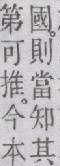 國。則當知其
第可推。今本